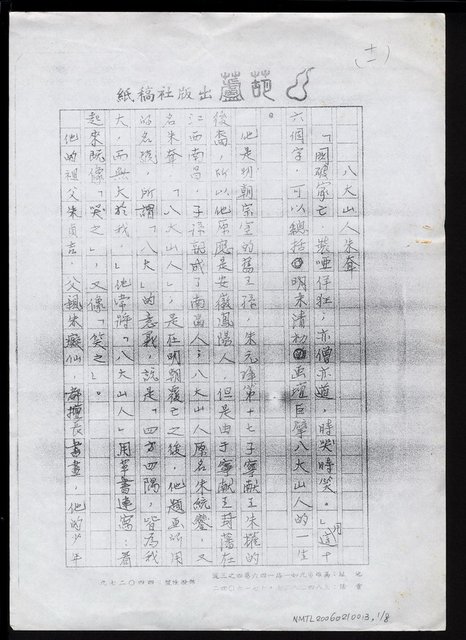 (十二)
葫蘆出版社稿紙
八大山人朱耷
「國破家亡,裝啞佯狂;亦僧亦道,時哭時笑。」這十
六個字,可以總括明末清初畫壇巨擘八大山人的一生
。
他是明朝宗室的舊王孫,朱元璋第十七子寧獻王朱權的
後裔,所以他原應是安徽鳳陽人,但是由于寧獻王封藩在
江西南昌,子孫就成了南昌人;八大山人原名朱統𨨗,又
名朱耷,「八大山人」,是在明朝覆亡之後,他題畫所用
的名號,所謂「八大」的意義,說是「四方四隅,皆為我
大,而無大於我」。他常將「八大山人」用草書連寫,看
起來既像「哭之」,又像「笑之」。
他的祖父朱貞吉,父親朱 仙,都擅長書畫,他的少年
NMTL20060210013, 1/8